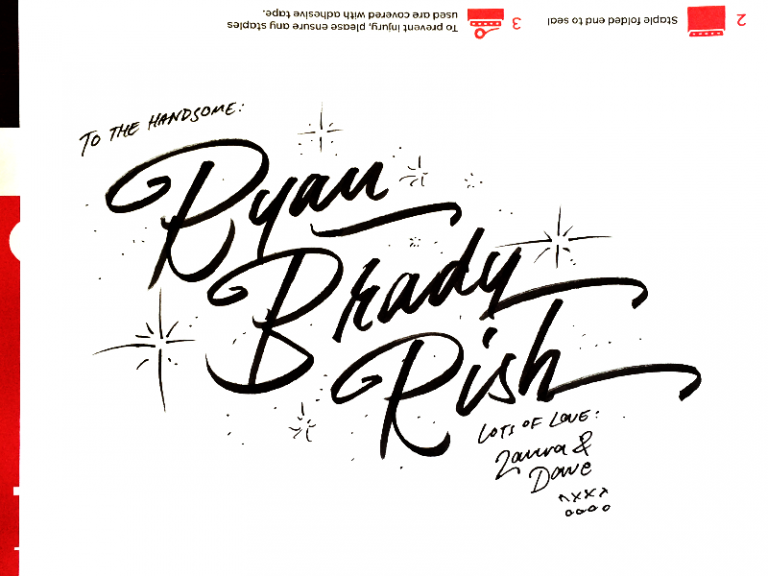 2
Staple folded end to seal
3
To prevent injury, please ensure any staples
used are covered with adhesive tape.
TO THE HANDSOME:
Ryan
Brady
Rish
LOTS OF LOVE:
Laura &
Dave
xxxx
oooo